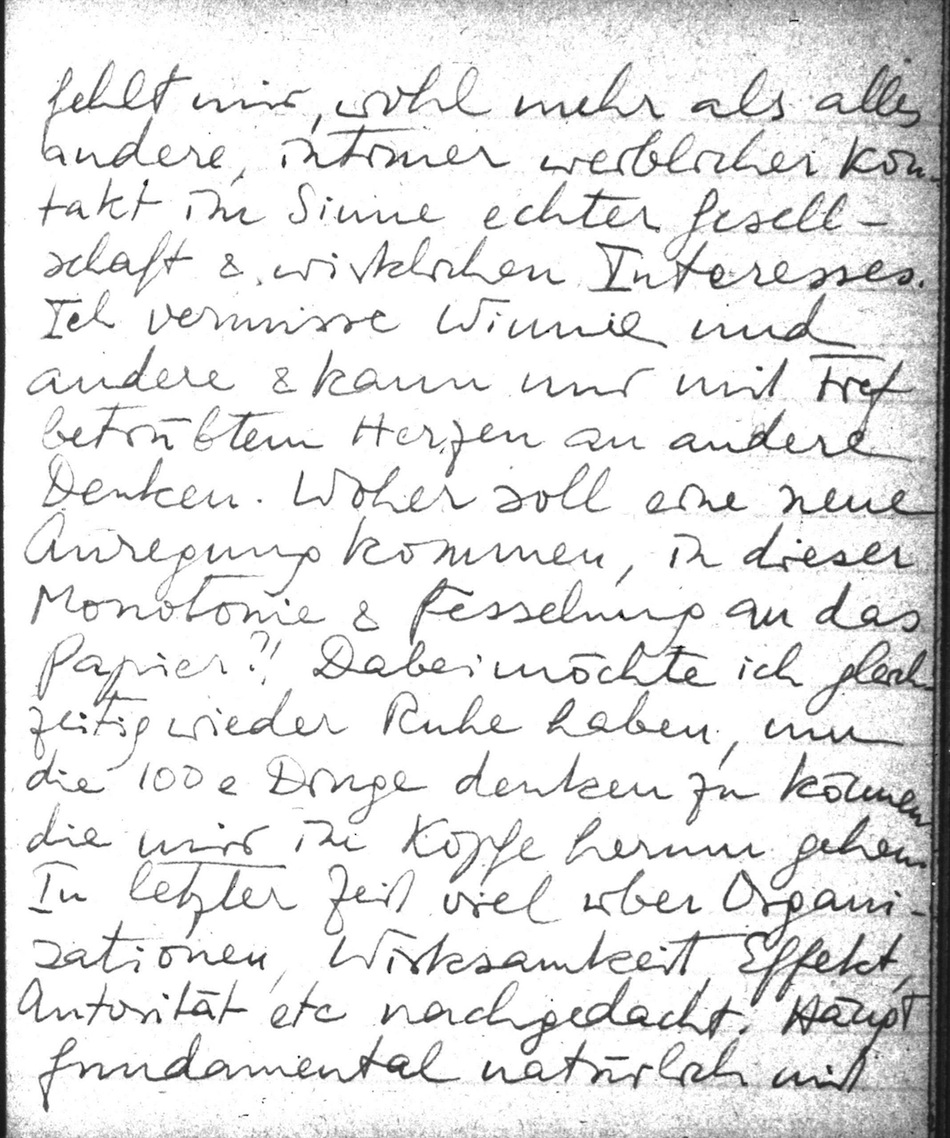 fehlt mir, wohl mehr als alles
andere, intimer weiblicher Kon-
takt im Sinne echter Gesell-
schaft & wirklichen Interesses.
Ich vermisse Winnie und
andere & kann nur mit tief
betrübtem Herzen an andere
Denken. Woher soll eine neue
Anregung kommen, in dieser
Monotonie & Fesselung an das
Papier?! Dabei möchte ich gleich
zeitig wieder Ruhe haben, um
die 100e Dinge denken zu können
die mir im Kopfe herum gehen.
In letzter Zeit viel über Organi-
sationen, Wirksamkeit, Effekt,
Autorität etc nachgedacht. Haupt
fundamental natürlich mit